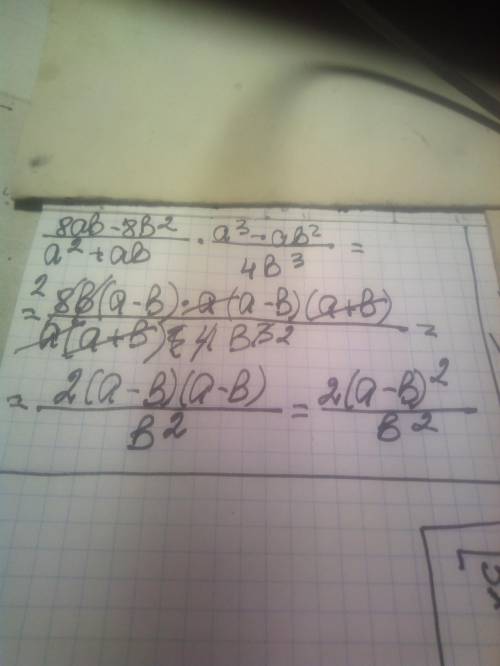 (8ab - 8b²)/(a² + ab) · (a³ - ab²)/(4b³) =
= ²8b(a-b)·a(a-b)(a+b)/(a(a+b)·4b³ ²) =
= 2(a-b)(a-b)/b² = 2(a-b)²/b²